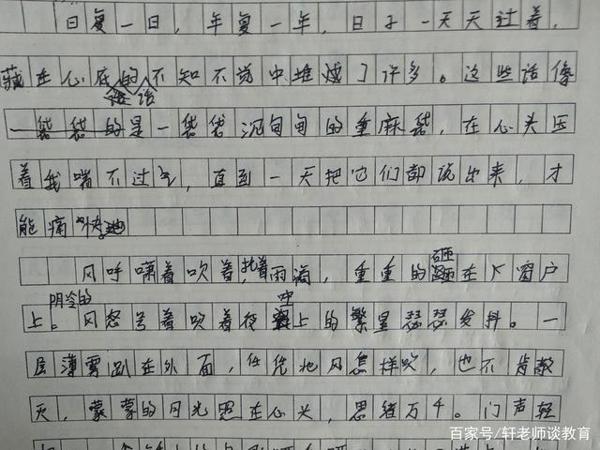 日复一日，年复一年，日子一天天过着，
藏在心底的话不知不觉中堆攒了许多。这些话像
一袋袋的是一袋袋沉甸甸的重麻袋，在心头压
着我喘不过气，直到一天把它们都说出来，才
能痛快地
风呼啸着吹着，托着雨滴，重重的砸在了窗户
上。阴冷的风怒号着吹着夜空上的繁星瑟瑟发抖。一
层薄雾趴在外面，任凭北风怎样吹，也不肯散
灭，蒙蒙的月光照在心头，思绪万千。门声轻
百家号/轩老师谈教育